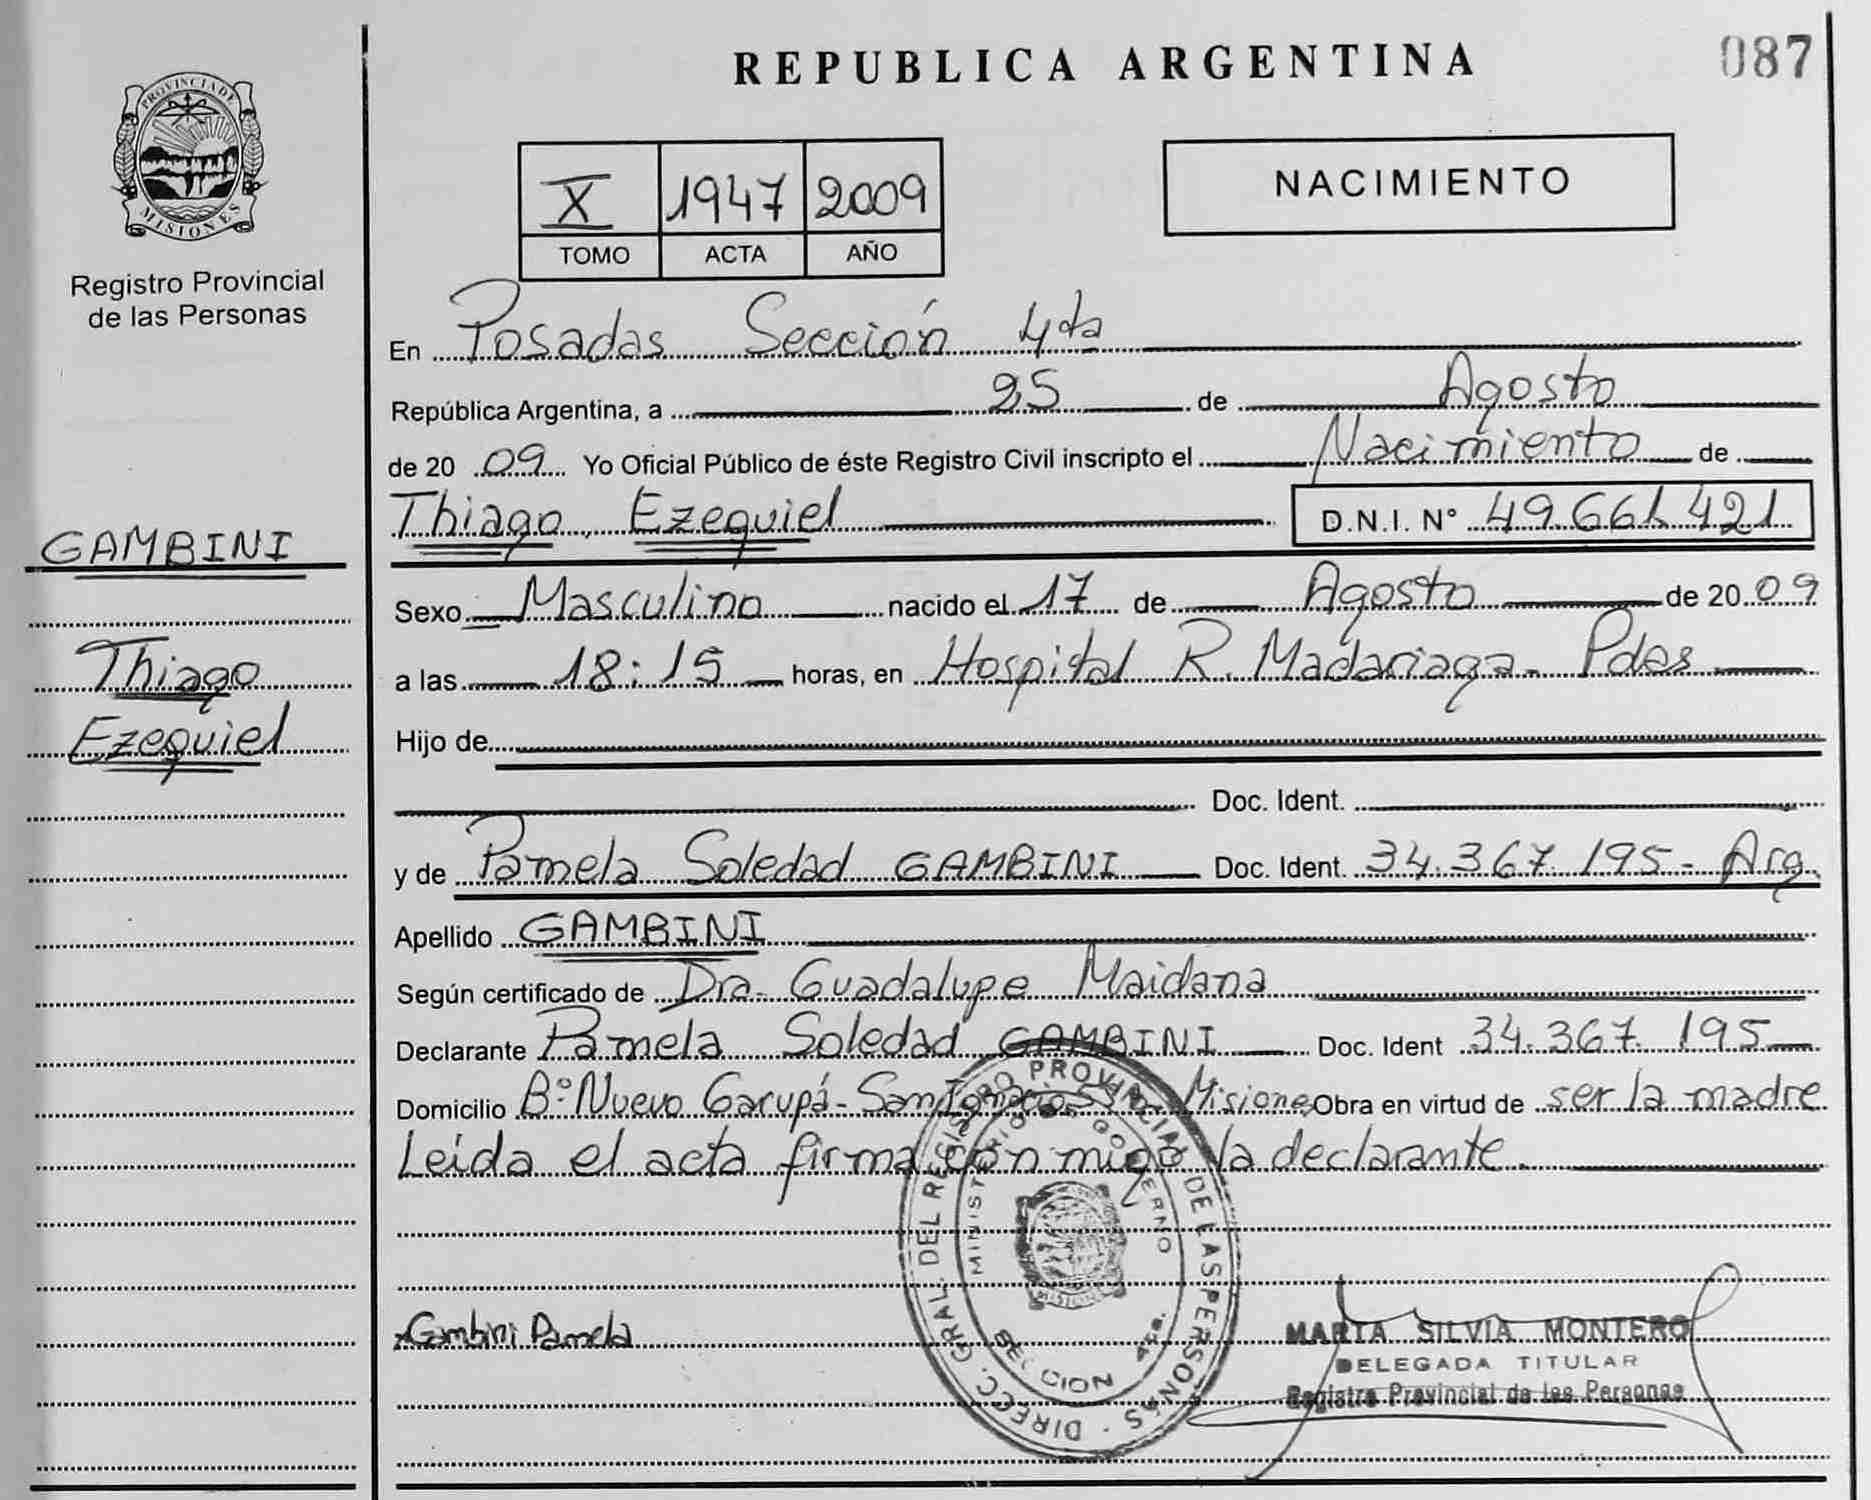 REPUBLICA ARGENTINA
087
PROVINCIA DE
MISIONES
Registro Provincial
de las Personas
X 1947 2009
TOMO ACTA AÑO
NACIMIENTO
En Posadas Sección 4ta
República Argentina, a 25 de Agosto
de 2009 Yo Oficial Público de éste Registro Civil inscripto el Nacimiento de
Thiago Ezequiel D.N.I. N° 49.661.421
GAMBINI
Thiago
Ezequiel
Sexo Masculino nacido el 17 de Agosto de 2009
a las 18:15 horas, en Hospital R. Madariaga - Pdas
Hijo de
Doc. Ident.
y de Pamela Soledad GAMBINI Doc. Ident. 34.367.195 - Arg.
Apellido GAMBINI
Según certificado de Dra. Guadalupe Maidana
Declarante Pamela Soledad GAMBINI Doc. Ident 34.367.195
Domicilio B° Nuevo Garupá - San Ignacio Misiones Obra en virtud de ser la madre
Leida el acta firma con migo la declarante.
DIRECC. GRAL. DEL REGISTRO PROVINCIAL DE LAS PERSONAS
MINISTERIO DE GOBIERNO
SECCION 4ta.
MISIONES
Gambini Pamela
MARTA SILVIA MONTERO
DELEGADA TITULAR
Registro Provincial de las Personas